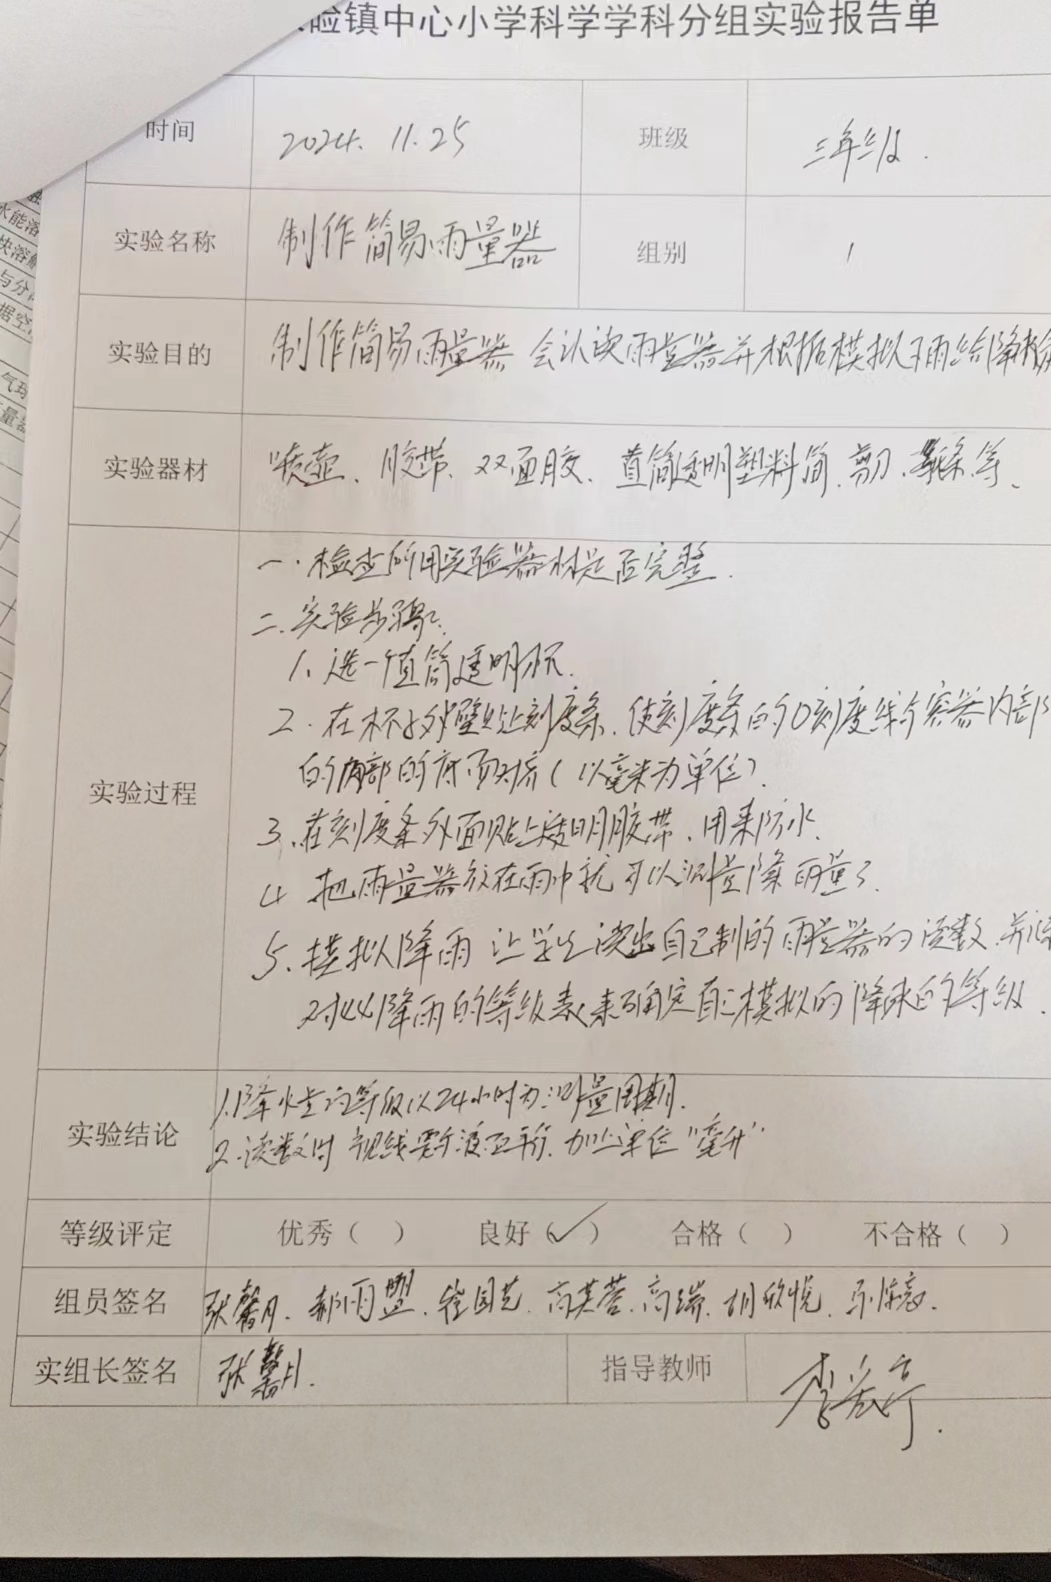 险镇中心小学科学学科分组实验报告单
时间 2024.11.25 班级 三年级.
实验名称 制作简易雨量器 组别 1
实验目的 制作简易雨量器 会认读雨量器并根据模拟下雨给降
实验器材 喷壶、胶带、双面胶、直筒透明塑料筒、剪刀、等、
一.检查所用实验器材是否完整.
二.实验步骤:
1、选一个直筒透明杯.
2.在杯子外壁贴上刻度条、使刻度条的0刻度线与容器内部
实验过程
的内部的底面对齐(以毫米为单位).
3、在刻度条外面贴上透明胶带、用来防水.
4 把雨量器放在雨中就可以测量降雨量了.
5.模拟降雨 让学生读出自己制的雨量器的读数.并
对照降雨的等级表来确定自己模拟的降水的等级.
1.降水量的等级以24小时为测量周期.
实验结论
2.读数时 视线要与液面平行.加上单位"毫升"
等级评定 优秀( ) 良好(✓) 合格( ) 不合格( )
组员签名 张馨月.郝雨盟.崔国艺.高芙蓉.高瑞.胡欣悦.
实组长签名 张馨月. 指导教师 李
水能溶
块溶解
与分
据空
气球
量器